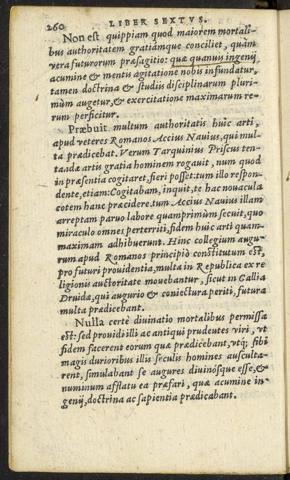 260 LIBER SEXTVS.
Non est quippiam quod maiorem mortali-
bus authoritatem gratiámque conciliet, quàm
vera futurorum præsagitio: quæ quanuis ingenij
acumine & mentis agitatione nobis infundatur,
tamen doctrina & studiis disciplinarum pluri-
mùm augetur, & exercitatione maximarum re-
rum perficitur.
Præbuit multum authoritatis huic arti,
apud veteres Romanos Accius Nauius, qui mul-
ta prædicebat. Verum Tarquinius Priscus ten-
taadæ artis gratia hominem rogauit, num quod
in præsentia cogitaret, fieri posset: tum illo respon-
dente, etiam: Cogitabam, inquit, te hac nouacula
cotem hanc præcidere. tum Accius Nauius illam
arreptam paruo labore quamprimùm secuit, quo
miraculo omnes perterriti, fidem huic arti quam-
maximam adhibuerunt. Hinc collegium augu-
rum apud Romanos principiò constitutum est,
pro futuri prouidentia, multa in Republica ex re-
ligionis auctoritate mouebantur, sicut in Gallia
Druidæ, qui augurio & coniectura periti, futura
multa prædicebant.
Nulla certè diuinatio mortalibus permissa
est: sed prouidi illi ac antiqui prudentes viri, vt
fidem facerent eorum quæ prædicebant, vtq; sibi
magis durioribus illis seculis homines ausculta-
rent, simulabant se augures diuinósque esse, &
numinum afflatu ea præfari, quæ acumine in-
genij, doctrina ac sapientia prædicabant.